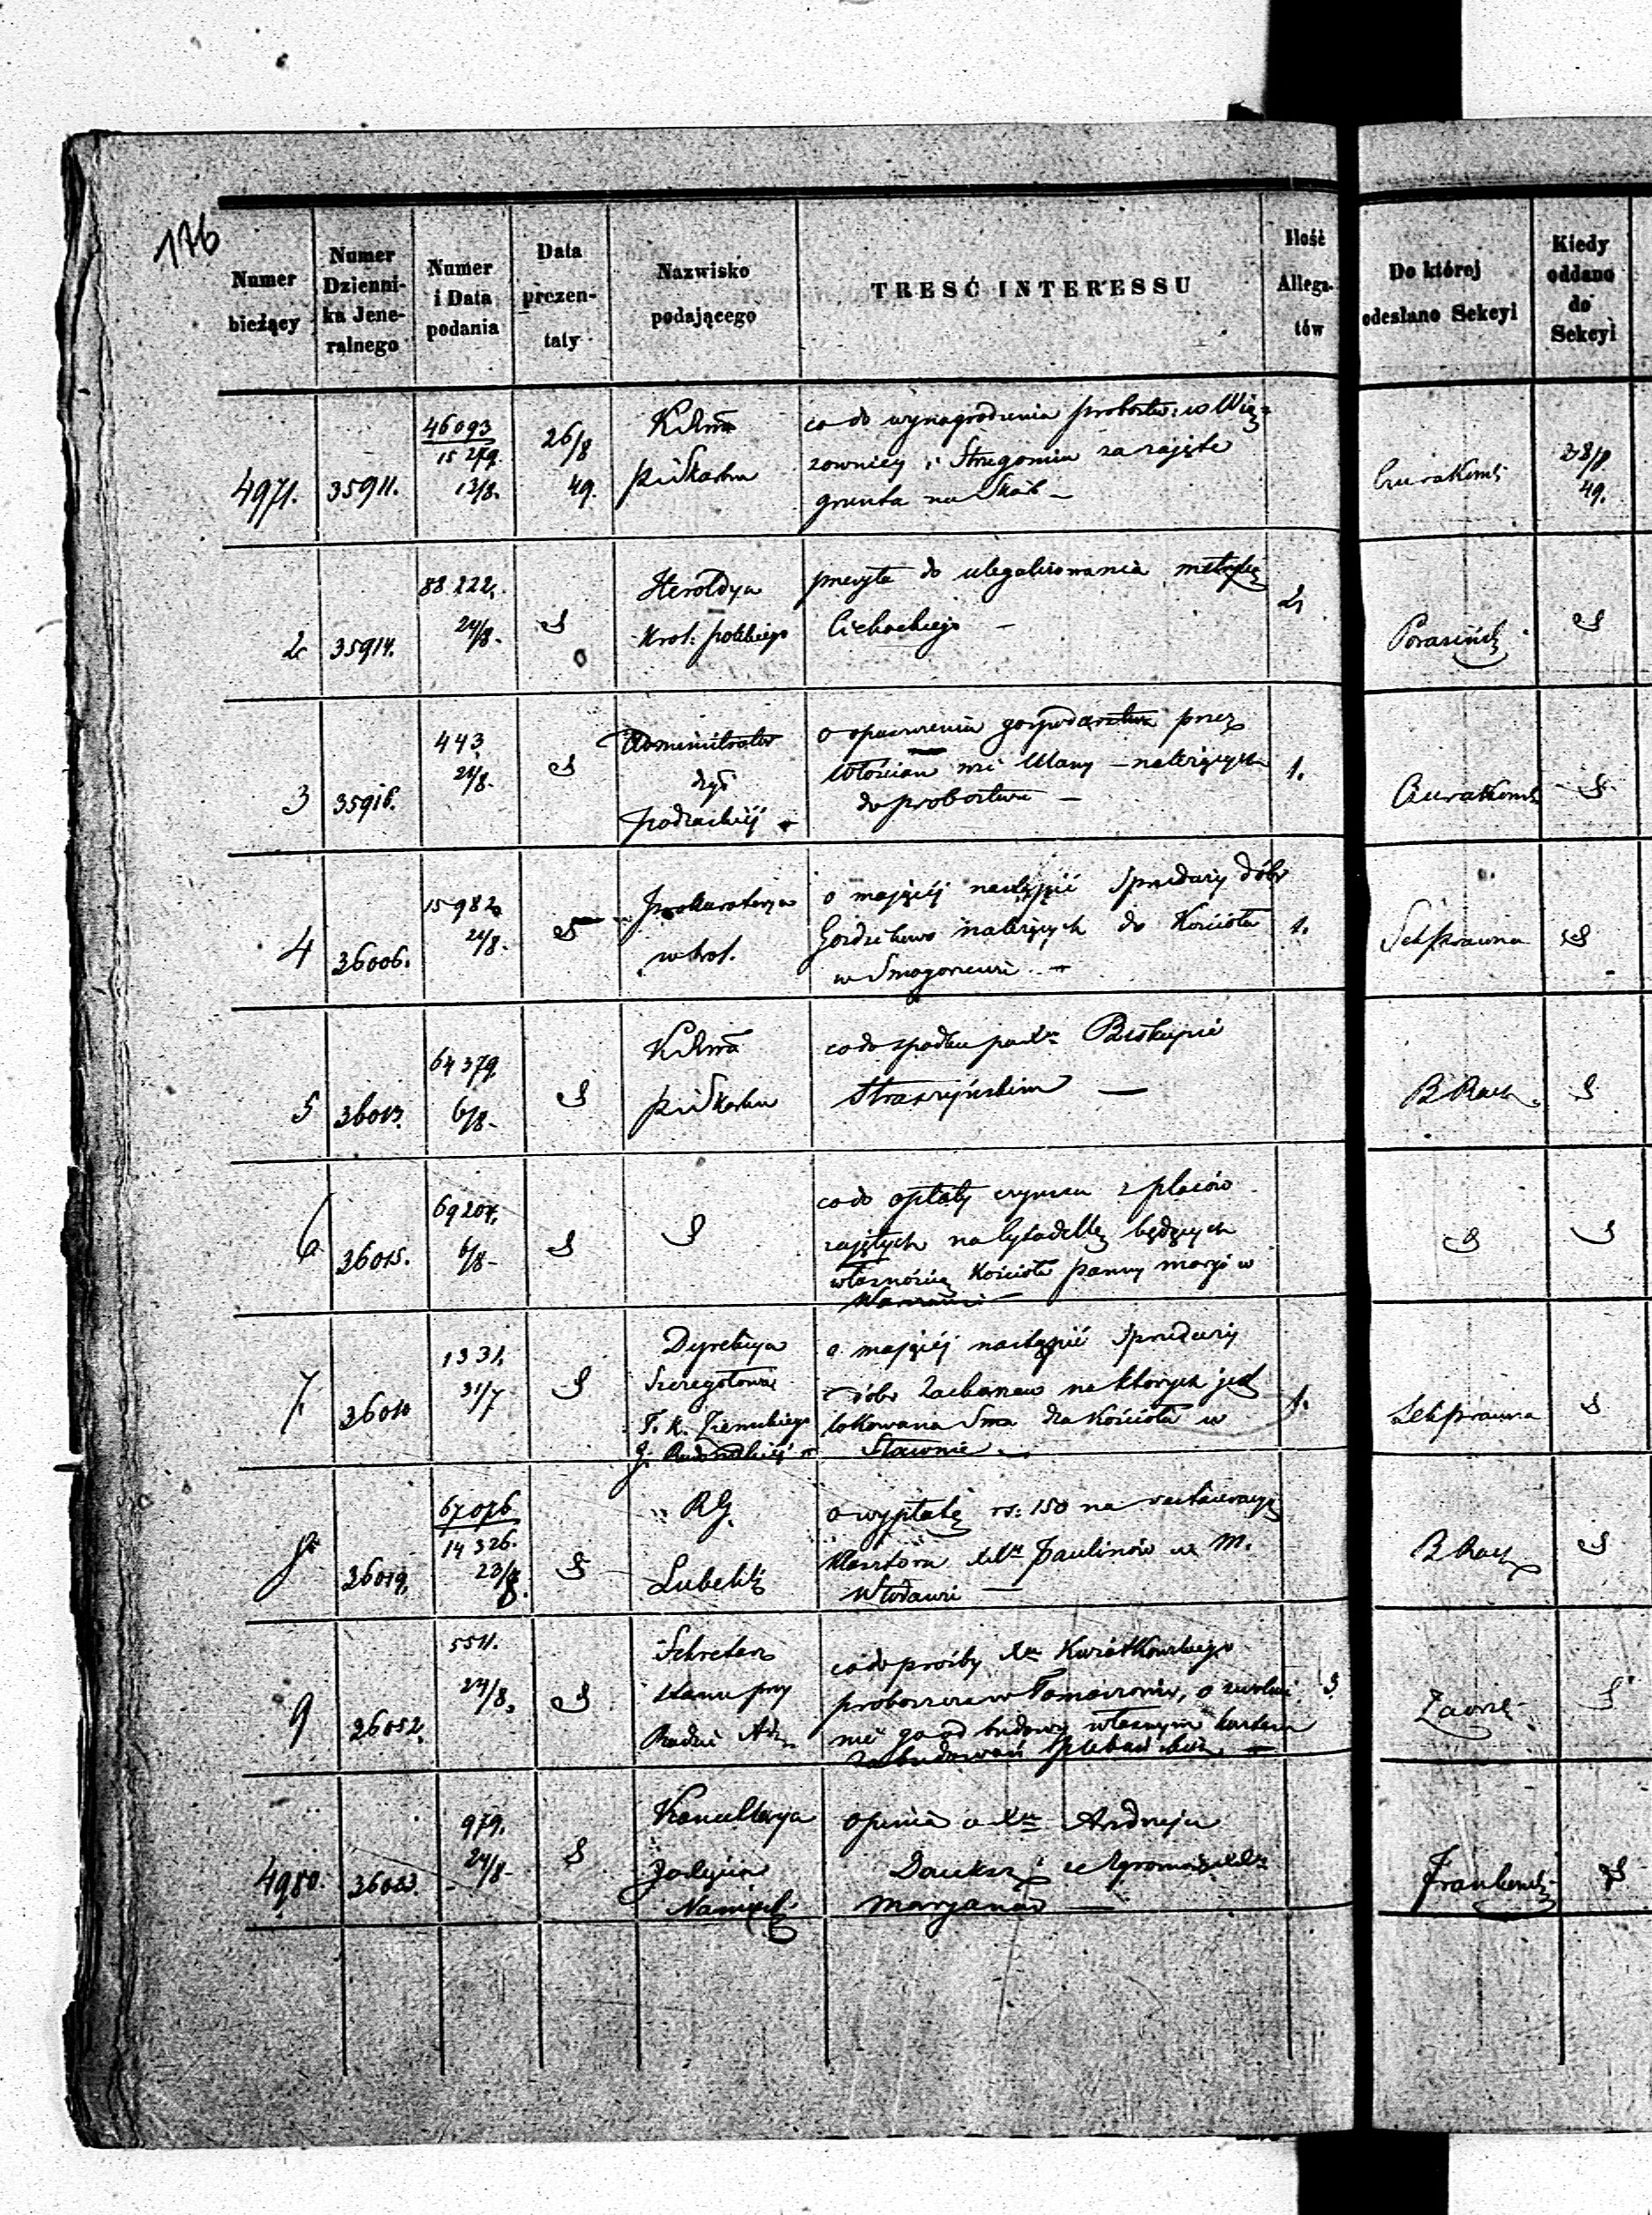 176
Numer bieżący
Numer Dzienni- ka Jene- ralnego
Numer i Data podania
Data prezen- taty
Nazwisko podającego
TRESĆ INTERESSU
Ilość Allega- tów
Do której odesłano Sekcyi
Kiedy oddano do Sekcyi
4971. 35911. 46093 15279. 13/8. 26/8 49.
co do wynagrodzenia probostw: w Wią=
zownicy i Strzegomiu za zajęte
grunta na Skarb –
28/8 49.
2 35914. 88222. 24/8.
Heroldya
Krol: polskiego
przesyła do ulegalizowania metrykę
Cichockiego –
2
3 35916. 443 24/8.
Administrator
dyś
podlaskiéj
o opuszczeniu gospodarstw przez
Włościan wsi Ulany – należących
do probostwa –
1.
4 36006. 15982 21/8.
Prokuratorya
w krol.
o mającéj nastąpić Sprzedaży dóbr
należących do Kościoła
w
1.
Sek prawna
5 36013. 64379. 6/8 –
co do spadku po Xu Biskupie
Straszyńskim –
B Rach
6 36015. 69204. 6/8 –
co do opłaty czynszu z placów
zajętych na Cytadellę będących
własnością Kościoła panny Maryi w
Warszawie –
7. 1331. 31/7
Dyrekcya
Szczegółowa
T. K. Ziemskiego
G. Radomskiéj
o mającéj nastąpić Sprzedaży
dóbr na których jest
lokowana Sma dla Kościoła w
Sławnie.
1.
Sek prawna
8 36019. 67076 14326. 23/8.
RG.
Lubelski
o wypłatę rs: 150 na restauracyę
Klasztoru XXw Paulinów w M.
Włodawie –
B Rach
9 36052. 5511. 24/8.
Sekretarz
Stanu przy
Radzie Adm
co do prośby Xa Kwiatkowskiego
proboszcza w Tomaszowie, o uwolnie
nie go od budowy własnym kosztem
zabudowań plebańskich –
3.
4980. 979. 24/8 –
Kancellarya
Namiest.
opinia o Xu Andrzeju
Dauksz z Zgromadz XX
Maryanów –